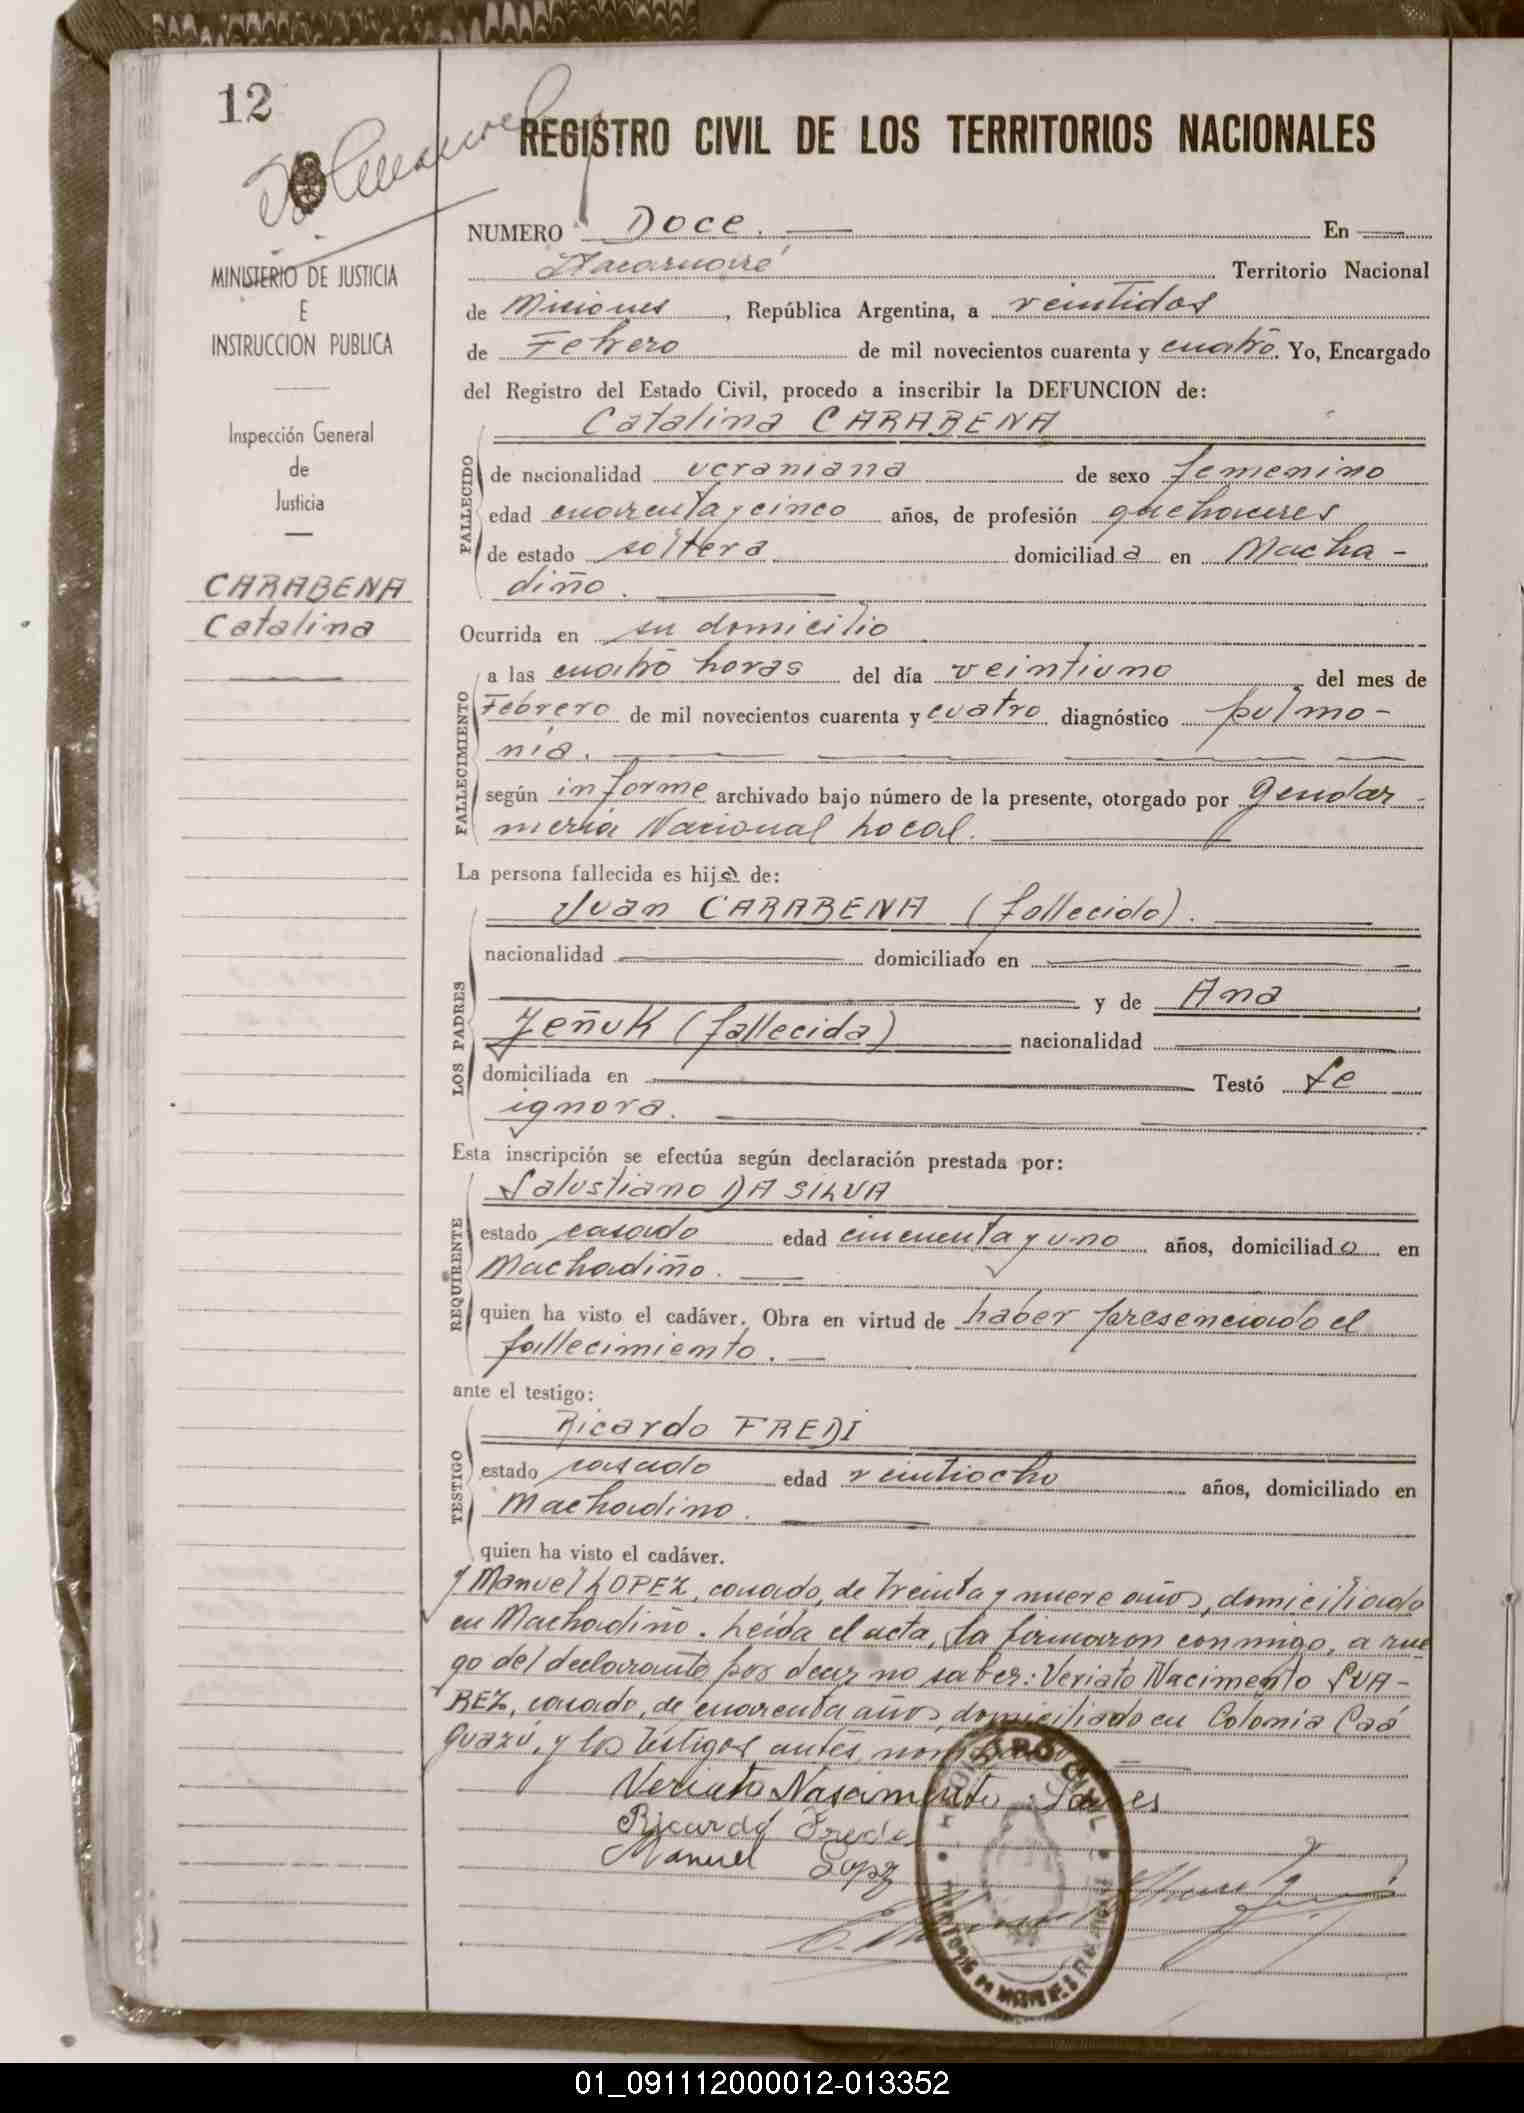 12
REGISTRO CIVIL DE LOS TERRITORIOS NACIONALES
MINISTERIO DE JUSTICIA
E
INSTRUCCION PUBLICA
Inspección General
de
Justicia
CARABENA
Catalina
NUMERO Doce. En
Itacaruaré Territorio Nacional
de Misiones, República Argentina, a veintidos
de Febrero de mil novecientos cuarenta y cuatro. Yo, Encargado
del Registro del Estado Civil, procedo a inscribir la DEFUNCION de:
Catalina CARABENA
FALLECIDO
de nacionalidad ucraniana de sexo femenino
edad cuarenta y cinco años, de profesión quehaceres
de estado soltera domiciliada en Macha-
diño.
Ocurrida en su domicilio
FALLECIMIENTO
a las cuatro horas del día veintiuno del mes de
Febrero de mil novecientos cuarenta y cuatro diagnóstico pulmo-
nía.
según informe archivado bajo número de la presente, otorgado por Gendar-
mería Nacional Local.
La persona fallecida es hija de:
LOS PADRES
Juan CARABENA (fallecido).
nacionalidad domiciliado en
y de Ana
Zeñuk (fallecida) nacionalidad
domiciliada en Testó Se
ignora.
Esta inscripción se efectúa según declaración prestada por:
REQUIRENTE
Salustiano DA SILVA
estado casado edad cincuenta y uno años, domiciliado en
Machadiño.
quien ha visto el cadáver. Obra en virtud de haber presenciado el
fallecimiento.
ante el testigo:
TESTIGO
Ricardo FREDI
estado casado edad veintiocho años, domiciliado en
Machadino.
quien ha visto el cadáver.
y Manuel LOPEZ, casado, de treinta y nueve años, domiciliado
en Machadiño. Leída el acta, la firmaron conmigo, a rue
go del declarante por decir no saber: Veriato Nacimento SUA-
REZ, casado, de cuarenta años, domiciliado en Colonia Caá
Guazú, y los testigos antes
Veriato Nasimento
Ricardo Fredi
Manuel Lopez
01_091112000012-013352